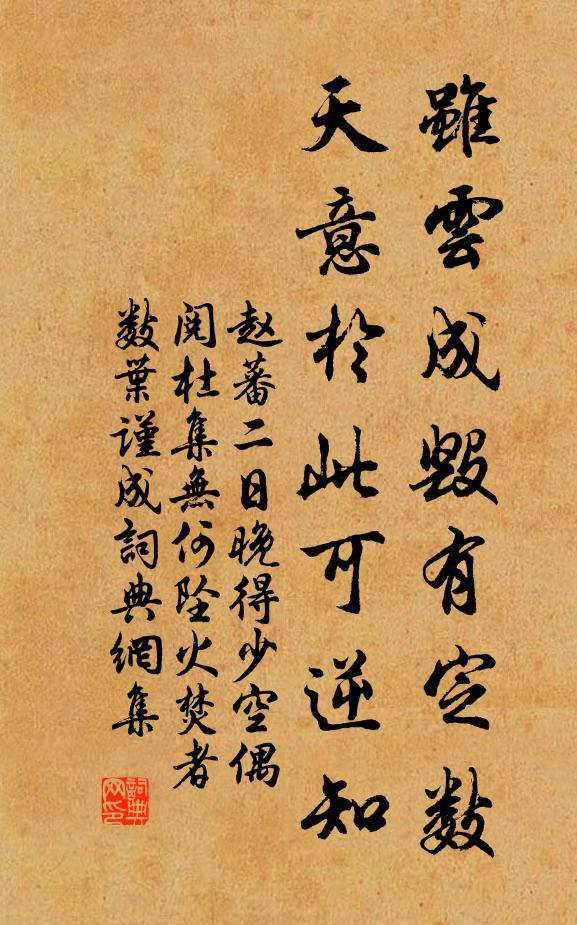 雖雲成毀有定數
天意於此可逆知
赵蕃二日晚得少空偶
閱杜集無何墜火焚者
數葉謹成詞典網集
詞典网印